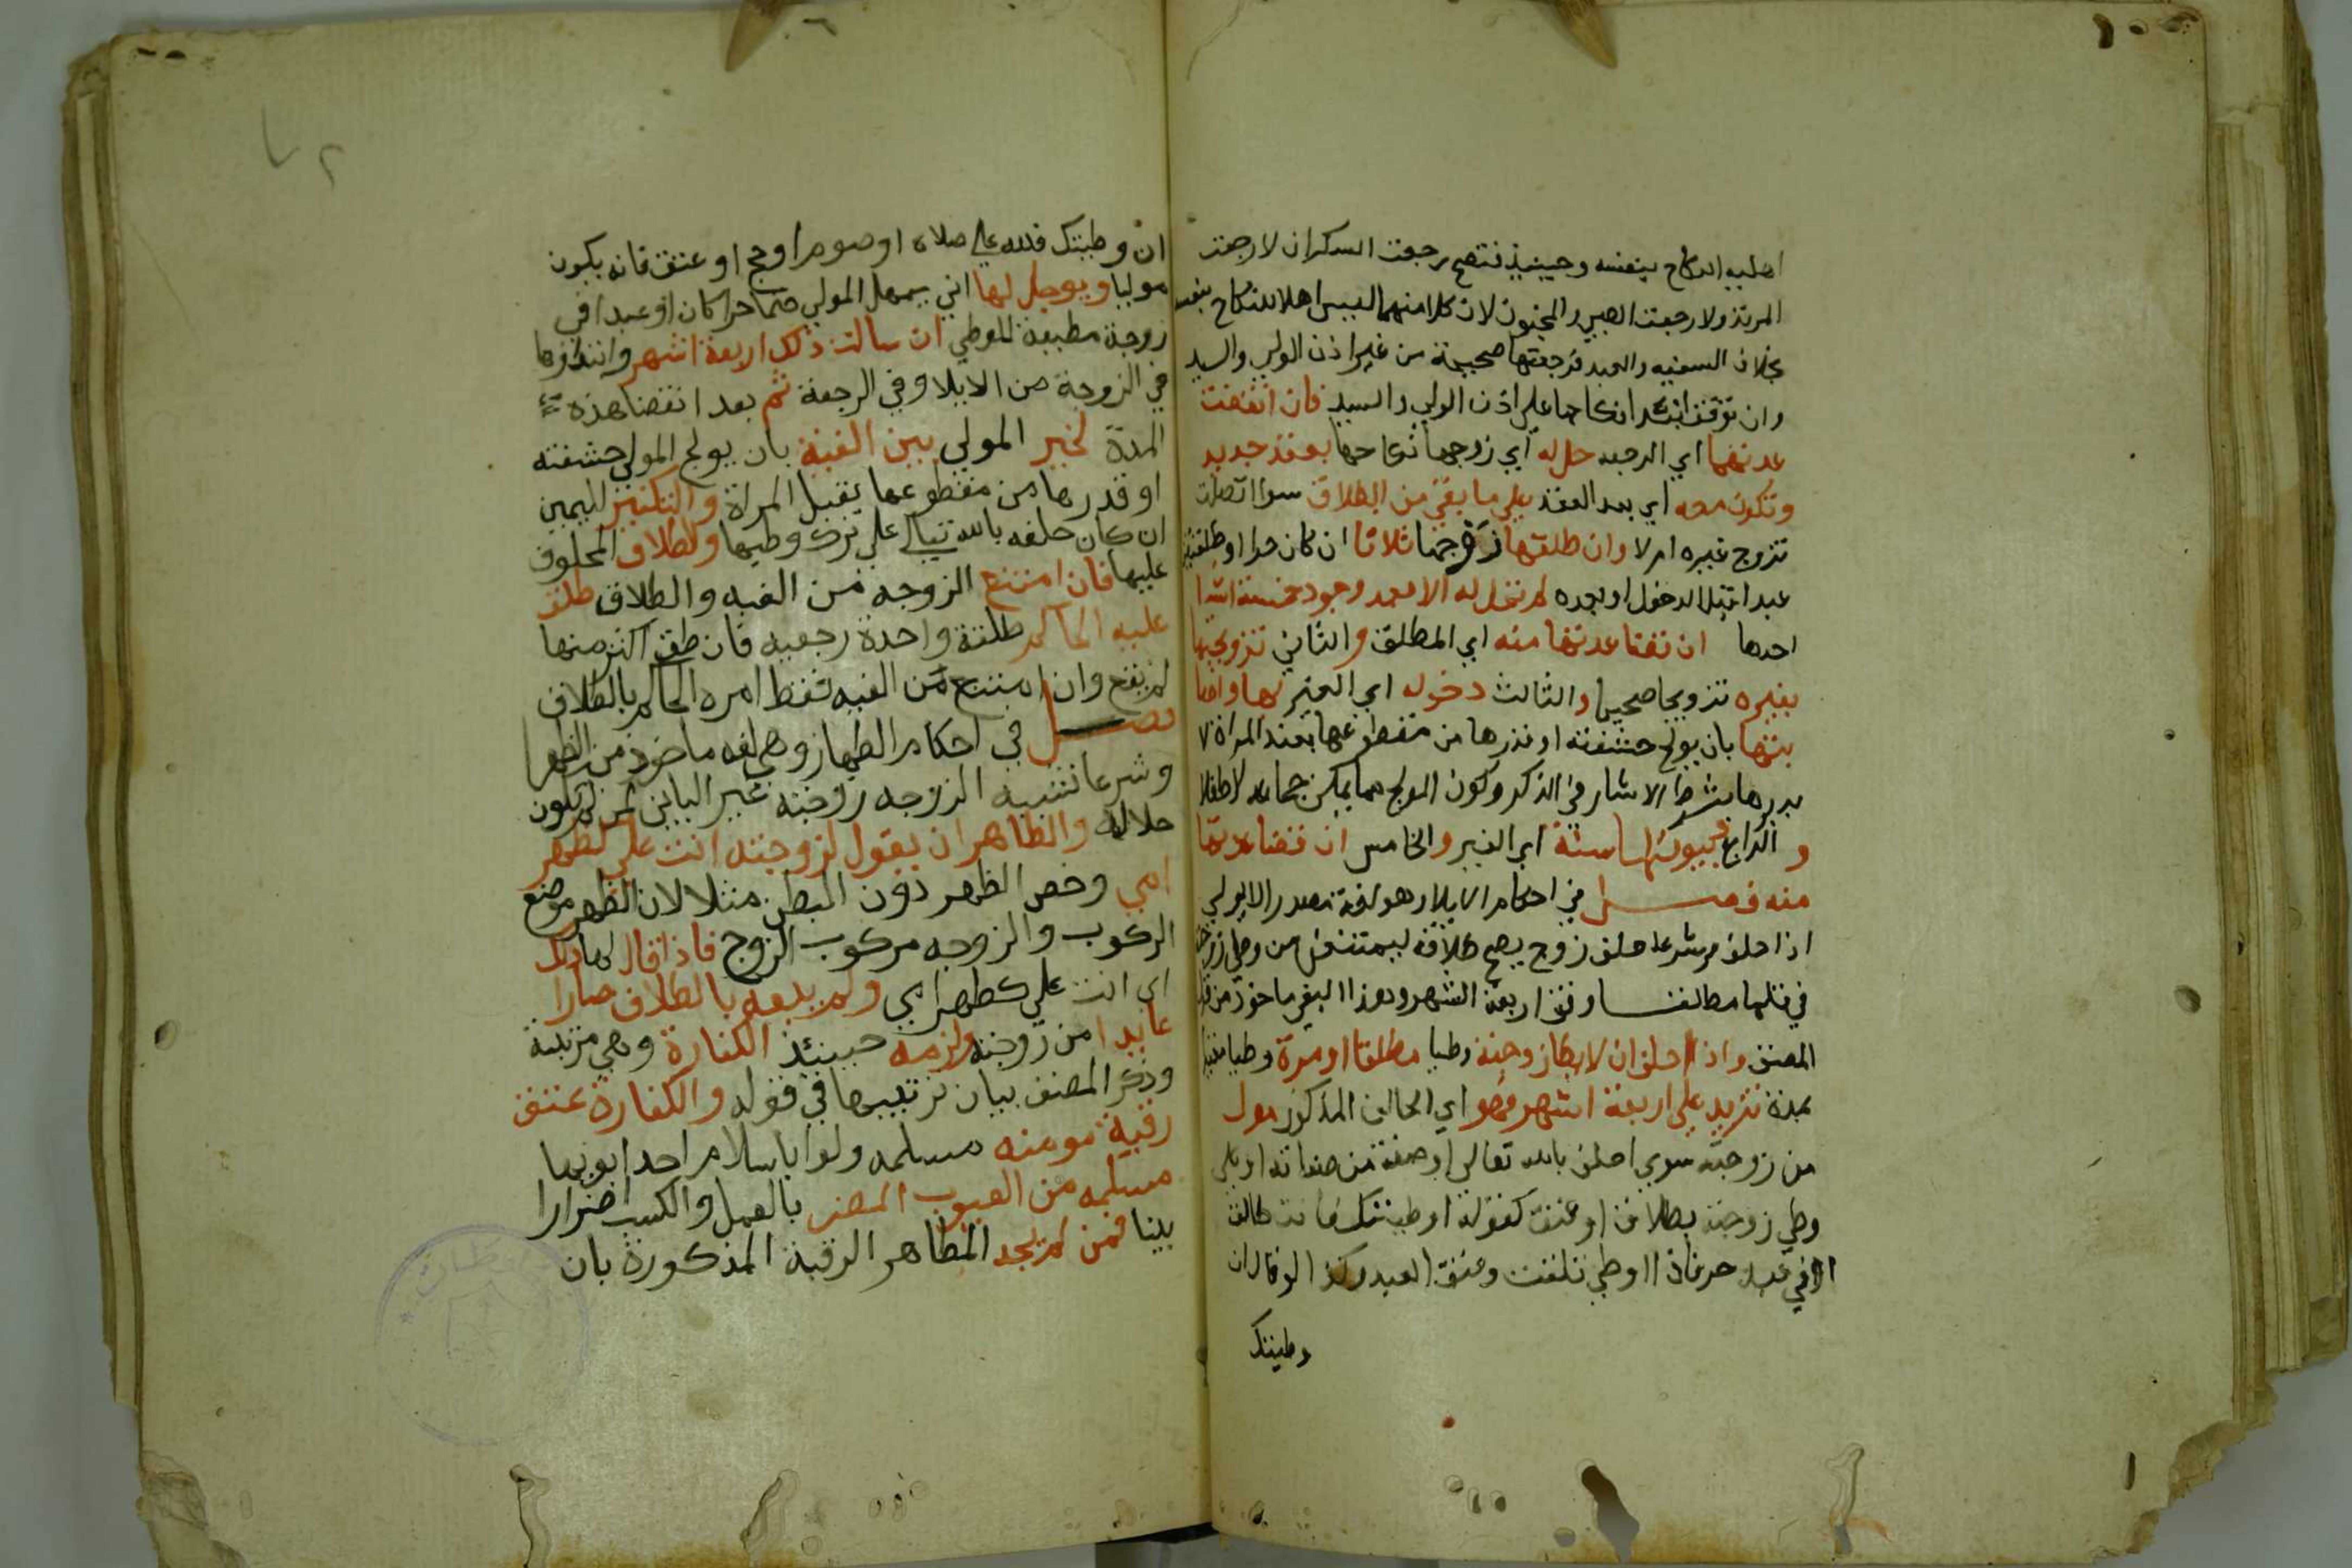 اهليه النكاح بنفسه وحينيذ فتصح رجعت السكران لا رجعت
المرتد ولا رجعت الصبي والمجنون لان كلا منهما ليس اهلا للنكاح بنفسه
بخلاف السفيه والعبد فرجعتهما صحيحة من غير اذن الولي والسيد
وان توقف ابتدا نكاحهما علي اذن الولي والسيد فان انقضت
عدتها اي الرجعيه حل له اي زوجها نكاحها بعقد جديد
وتكون معه اي بعد العقد علي ما بقي من الطلاق سوا اتصلت
تزوج غيره ام لا وان طلقها زوجها ثلاثا ان كان حرا او طلقتين
عبدا قبل الدخول او بعده لم تحل له الا بعد وجود خمسة اشيا
احدها ان تنقضا عدتها منه اي المطلق والثاني تزويجها
بغيره تزويجا صحيحا والثالث دخوله اي الغير بها واصا
بتها بان يولج حشفته او قدرها من مقطوعها بقبل المراة لا
بدبرها بشرط الانتشار في الذكر وكون المولج مما يمكن جماعه لا طفلا
والرابع بينونتها منه اي الغير والخامس انقضا عدتها
منه فصل في احكام الايلا وهو لغة مصدر الا يولي
اذا حلف وشرعا حلف زوج يصح طلاقه ليمتنعن من وطي زوجته
في قبلها مطلقا او فوق اربعة اشهر وهذا المعني ماخوذ من قول
المصنف واذا حلف ان لا يطا زوجته وطيا مطلقا او مرة وطيا مقيدا
بمدة تزيد علي اربعة اشهر فهو اي الحالف المذكور مول
من زوجته سوي احلف بالله تعالي او صفة من صفاته او علق
وطي زوجته بطلاق او عتق كقوله او وطيتك فانت طالق
او في عبد حر فاذا وطي تطلقت وعتق العبد وكذا لو قال ان
وطيتك
ان وطيتك فلله علي صلاه او صوم او حج او عتق فانه يكون
موليا ويوجل لها اي يمهل المولي حتما حرا كان او عبدا في
زوجة مطيقة للوطي ان سالت ذلك اربعة اشهر وابتداوها
في الزوجة من الايلا وفي الرجعة ثم بعد انقضا هذه
المدة يخير المولي بين الفيئة بان يولج المولي حشفته
او قدرها من مقطوعها بقبل المراة والتكفير لليمين
ان كان حلفه بالله تعالي علي ترك وطيها والطلاق المحلوف
عليها فان امتنع الزوجه من الفيه والطلاق طلق
عليه الحاكم طلقة واحدة رجعيه فان طلق اكثر منها
لم يقع وان امتنع من الفيه فقط امره الحاكم بالطلاق
فصل في احكام الظهار وهي لغه ماخوذ من الظهر
وشرعا تشبيه الزوجه زوجته غير الباين بمن لم تكون
حلاله والظاهر ان يقول لزوجته انت علي كظهر
امي وخص الظهر دون البطن مثلا لان الظهر موضع
الركوب والزوجه مركوب الزوج فاذا قال لها ذلك
اي انت علي كظهر امي ولم يتبعه بالطلاق صارا
عايدا من زوجته ولزمه حينئذ الكفارة وهي مرتبة
وذكر المصنف بيان ترتيبها في قوله والكفارة عتق
رقبة مومنه مسلمه ولو باسلام احد ابويها
مسلمه من العيوب المضر بالعمل والكسب اضرارا
بينا فمن لم يجد المظاهر الرقبة المذكورة بان